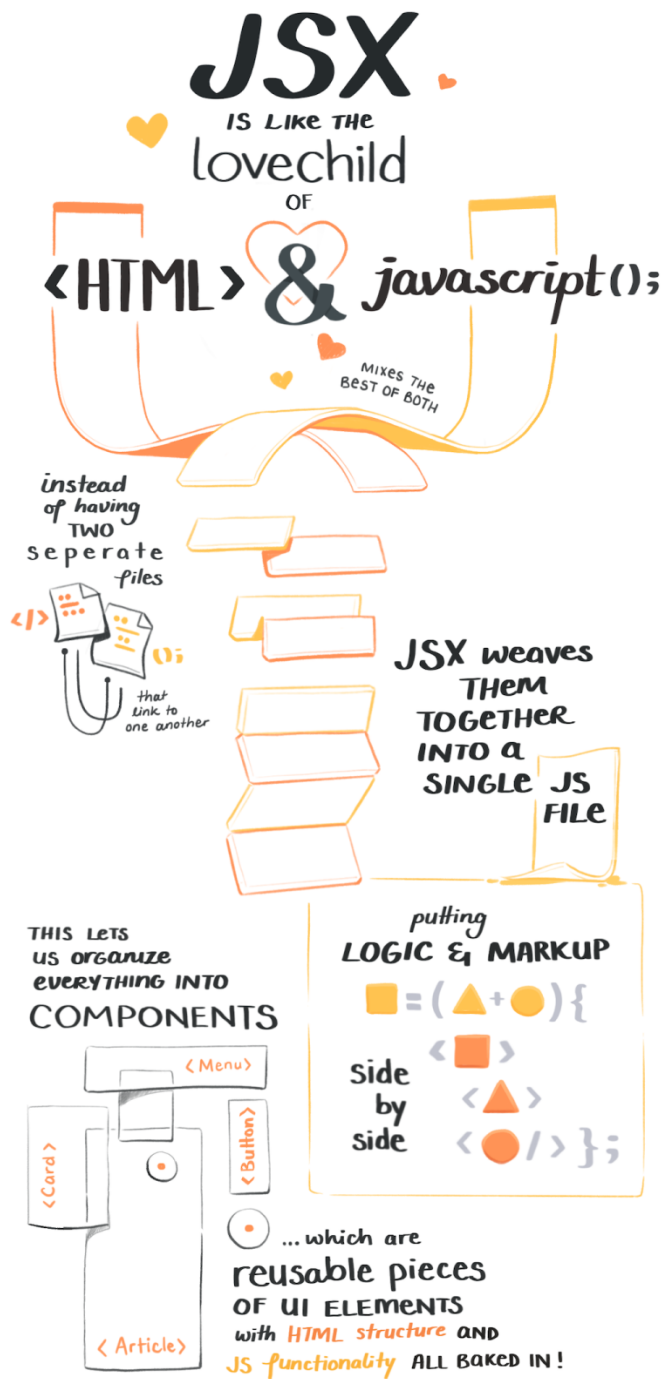 JSX
IS LIKE THE
lovechild
OF
<HTML> & javascript();
MIXES THE
BEST OF BOTH
instead
of having
TWO
seperate
files
</>
();
that
link to
one another
JSX weaves
THEM
TOGETHER
INTO a
SINGLE JS
FILE
putting
LOGIC & MARKUP
= ( + ) {
< >
< >
< /> };
side
by
side
THIS LETS
US ORGANIZE
EVERYTHING INTO
COMPONENTS
<Menu>
<Card>
<Button>
<Article>
...which are
reusable pieces
OF UI ELEMENTS
with HTML structure AND
JS functionality ALL BAKED IN!